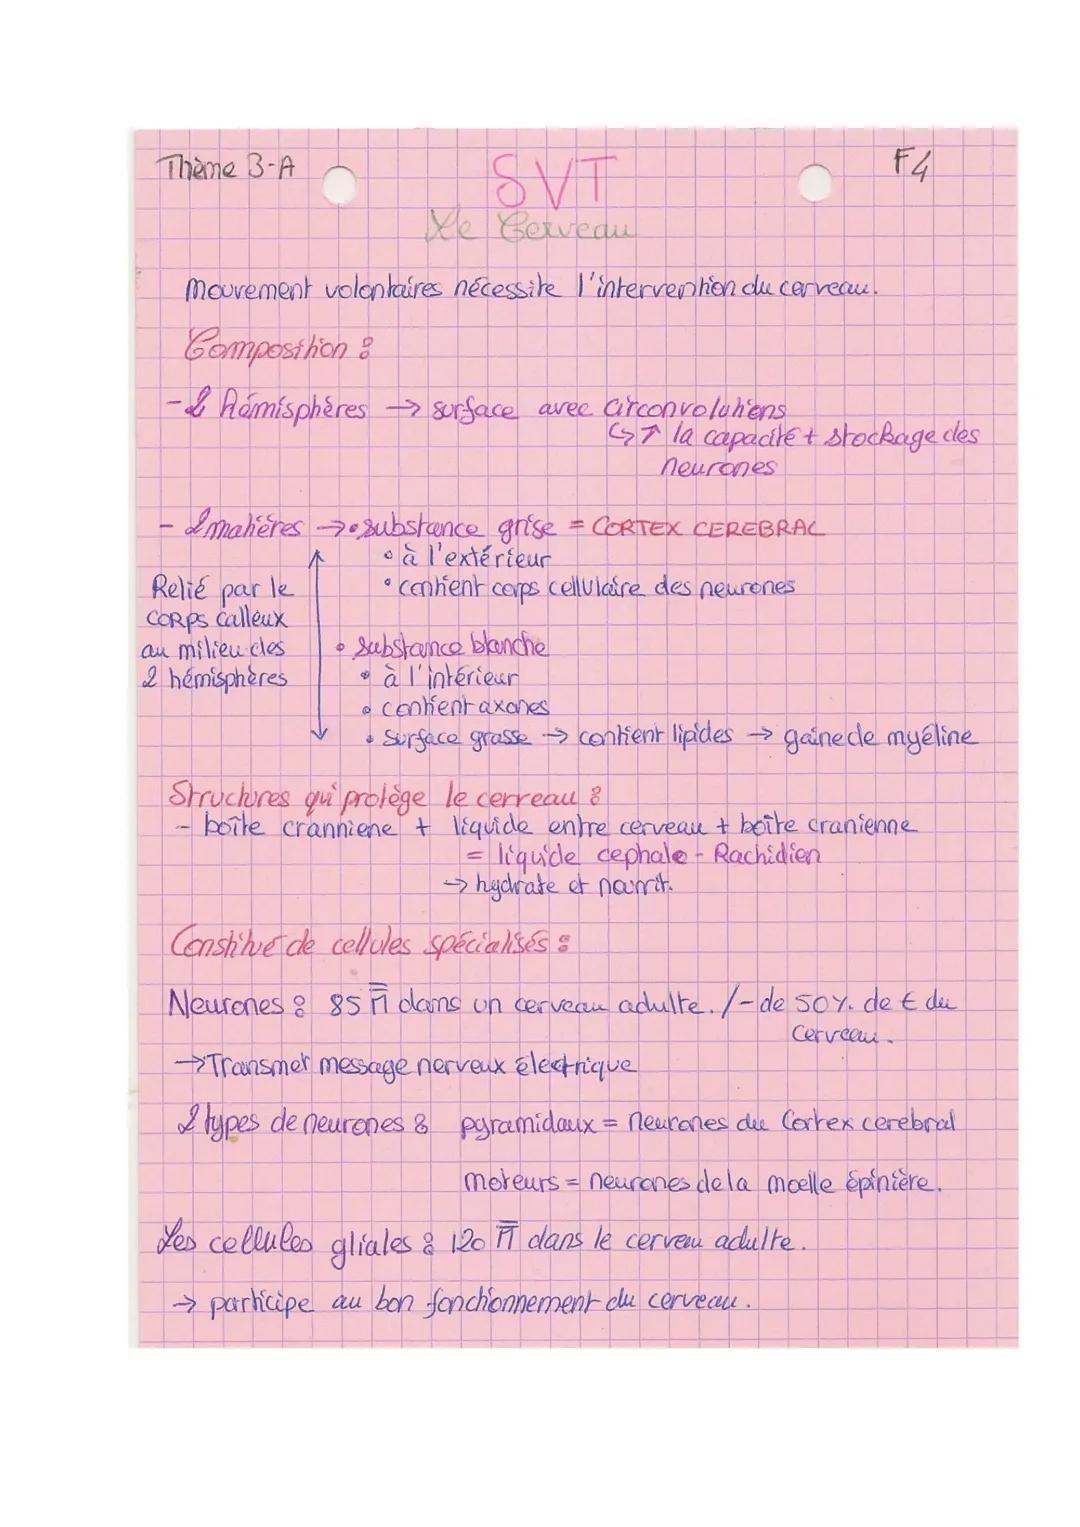 Thème 3-A
SVT
F4
Le Cerveau
Mouvement volontaires nécessite l'intervention du cerveau.
Composition :
- 2 hémisphères → surface avec circonvolutions
↳ ↑ la capacité + stockage des
neurones
- 2 matières → • substance grise = CORTEX CEREBRAL
• à l'extérieur
• contient corps cellulaire des neurones
Relié par le
CORPS calleux
au milieu des
2 hémisphères
• substance blanche
• à l'intérieur
• contient axones
• surface grasse → contient lipides → gaine de myéline
Structures qui protège le cerveau :
- boîte crannienne + liquide entre cerveau + boîte cranienne
= liquide cephalo-Rachidien
→ hydrate et nourrit.
Constitué de cellules spécialisés :
Neurones : 85 M dans un cerveau adulte. /- de 50% de € du
cerveau.
→ Transmet message nerveux électrique
2 types de neurones : pyramidaux = neurones du Cortex cerebral
moteurs = neurones de la moelle épinière.
Les cellules gliales : 120 M dans le cerveau adulte.
→ participe au bon fonctionnement du cerveau.